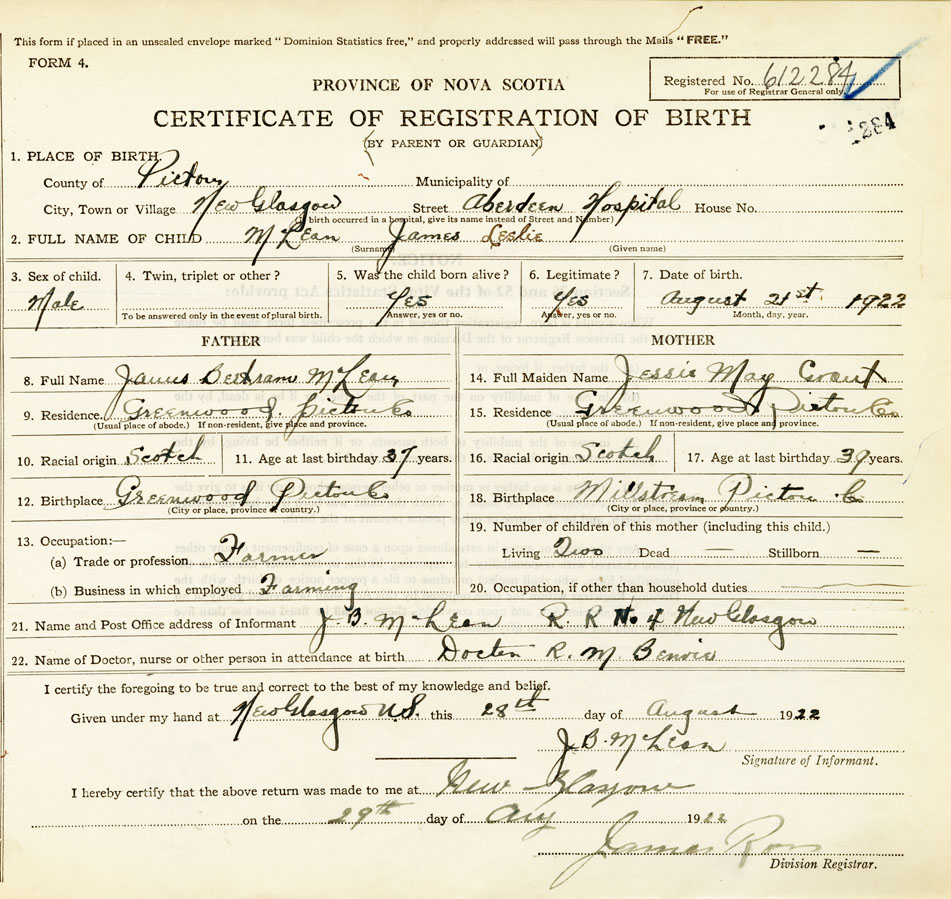 This form if placed in an unsealed envelope marked "Dominion Statistics free," and properly addressed will pass through the Mails "FREE."
FORM 4.
Registered No. 612284
For use of Registrar General only.
PROVINCE OF NOVA SCOTIA
CERTIFICATE OF REGISTRATION OF BIRTH
284
(BY PARENT OR GUARDIAN)
1. PLACE OF BIRTH.
County of Pictou Municipality of
City, Town or Village New Glasgow Street Aberdeen Hospital House No.
(If birth occurred in a hospital, give its name instead of Street and Number)
2. FULL NAME OF CHILD McLean James Leslie
(Surname) (Given name)
3. Sex of child. 4. Twin, triplet or other? 5. Was the child born alive? 6. Legitimate? 7. Date of birth.
Male Yes Yes August 21st 1922
To be answered only in the event of plural birth. Answer, yes or no. Answer, yes or no. Month, day, year.
FATHER MOTHER
8. Full Name James Bertram McLean 14. Full Maiden Name Jessie May Grant
9. Residence. Greenwood. Pictou Co 15. Residence Greenwood Pictou Co.
(Usual place of abode.) If non-resident, give place and province. (Usual place of abode.) If non-resident, give place and province.
10. Racial origin Scotch 11. Age at last birthday 37 years. 16. Racial origin Scotch 17. Age at last birthday 39 years.
12. Birthplace Greenwood Pictou Co 18. Birthplace Millstream Pictou Co
(City or place, province or country.) (City or place, province or country.)
19. Number of children of this mother (including this child.)
13. Occupation:—
(a) Trade or profession Farmer Living Two Dead — Stillborn —
(b) Business in which employed Farming 20. Occupation, if other than household duties
21. Name and Post Office address of Informant J B. McLean R. R No. 4 New Glasgow
22. Name of Doctor, nurse or other person in attendance at birth Docter R. M. Benvie
I certify the foregoing to be true and correct to the best of my knowledge and belief.
Given under my hand at New Glasgow N.S. this 28th day of August 1922
J B. McLean
Signature of Informant.
I hereby certify that the above return was made to me at New Glasgow
on the 29th day of Aug 1922
James Ross
Division Registrar.